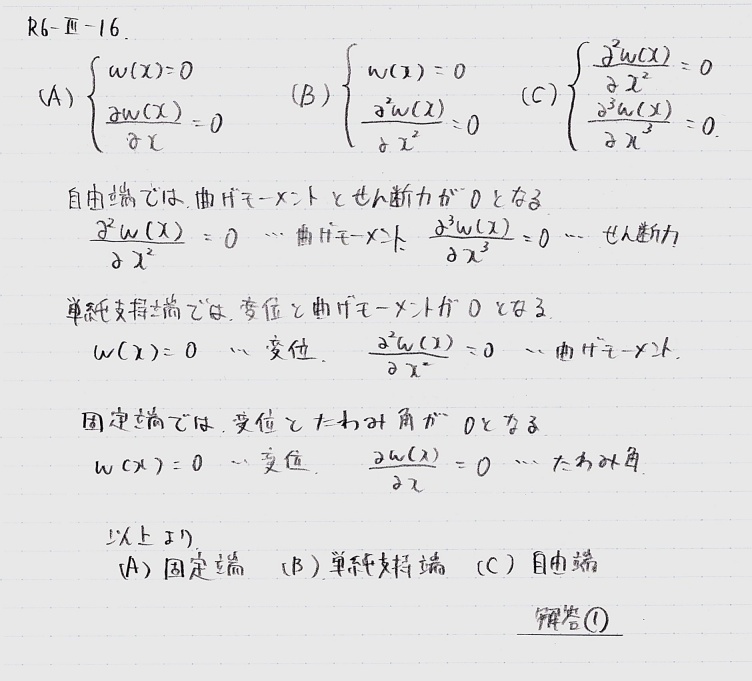 R6-Ⅲ-16.
(A) { w(x)=0, ∂w(x)/∂x =0 (B) { w(x)=0, ∂²w(x)/∂x² =0 (C) { ∂²w(x)/∂x² =0, ∂³w(x)/∂x³ =0.
自由端では、曲げモーメントとせん断力が0となる
∂²w(x)/∂x² = 0 … 曲げモーメント、 ∂³w(x)/∂x³ =0 … せん断力
単純支持端では、変位と曲げモーメントが0となる
w(x)=0 … 変位. ∂²w(x)/∂x² =0 … 曲げモーメント.
固定端では、変位とたわみ角が0となる
w(x)=0 … 変位. ∂w(x)/∂x = 0 … たわみ角
以上より、
(A) 固定端 (B) 単純支持端 (C) 自由端
解答①